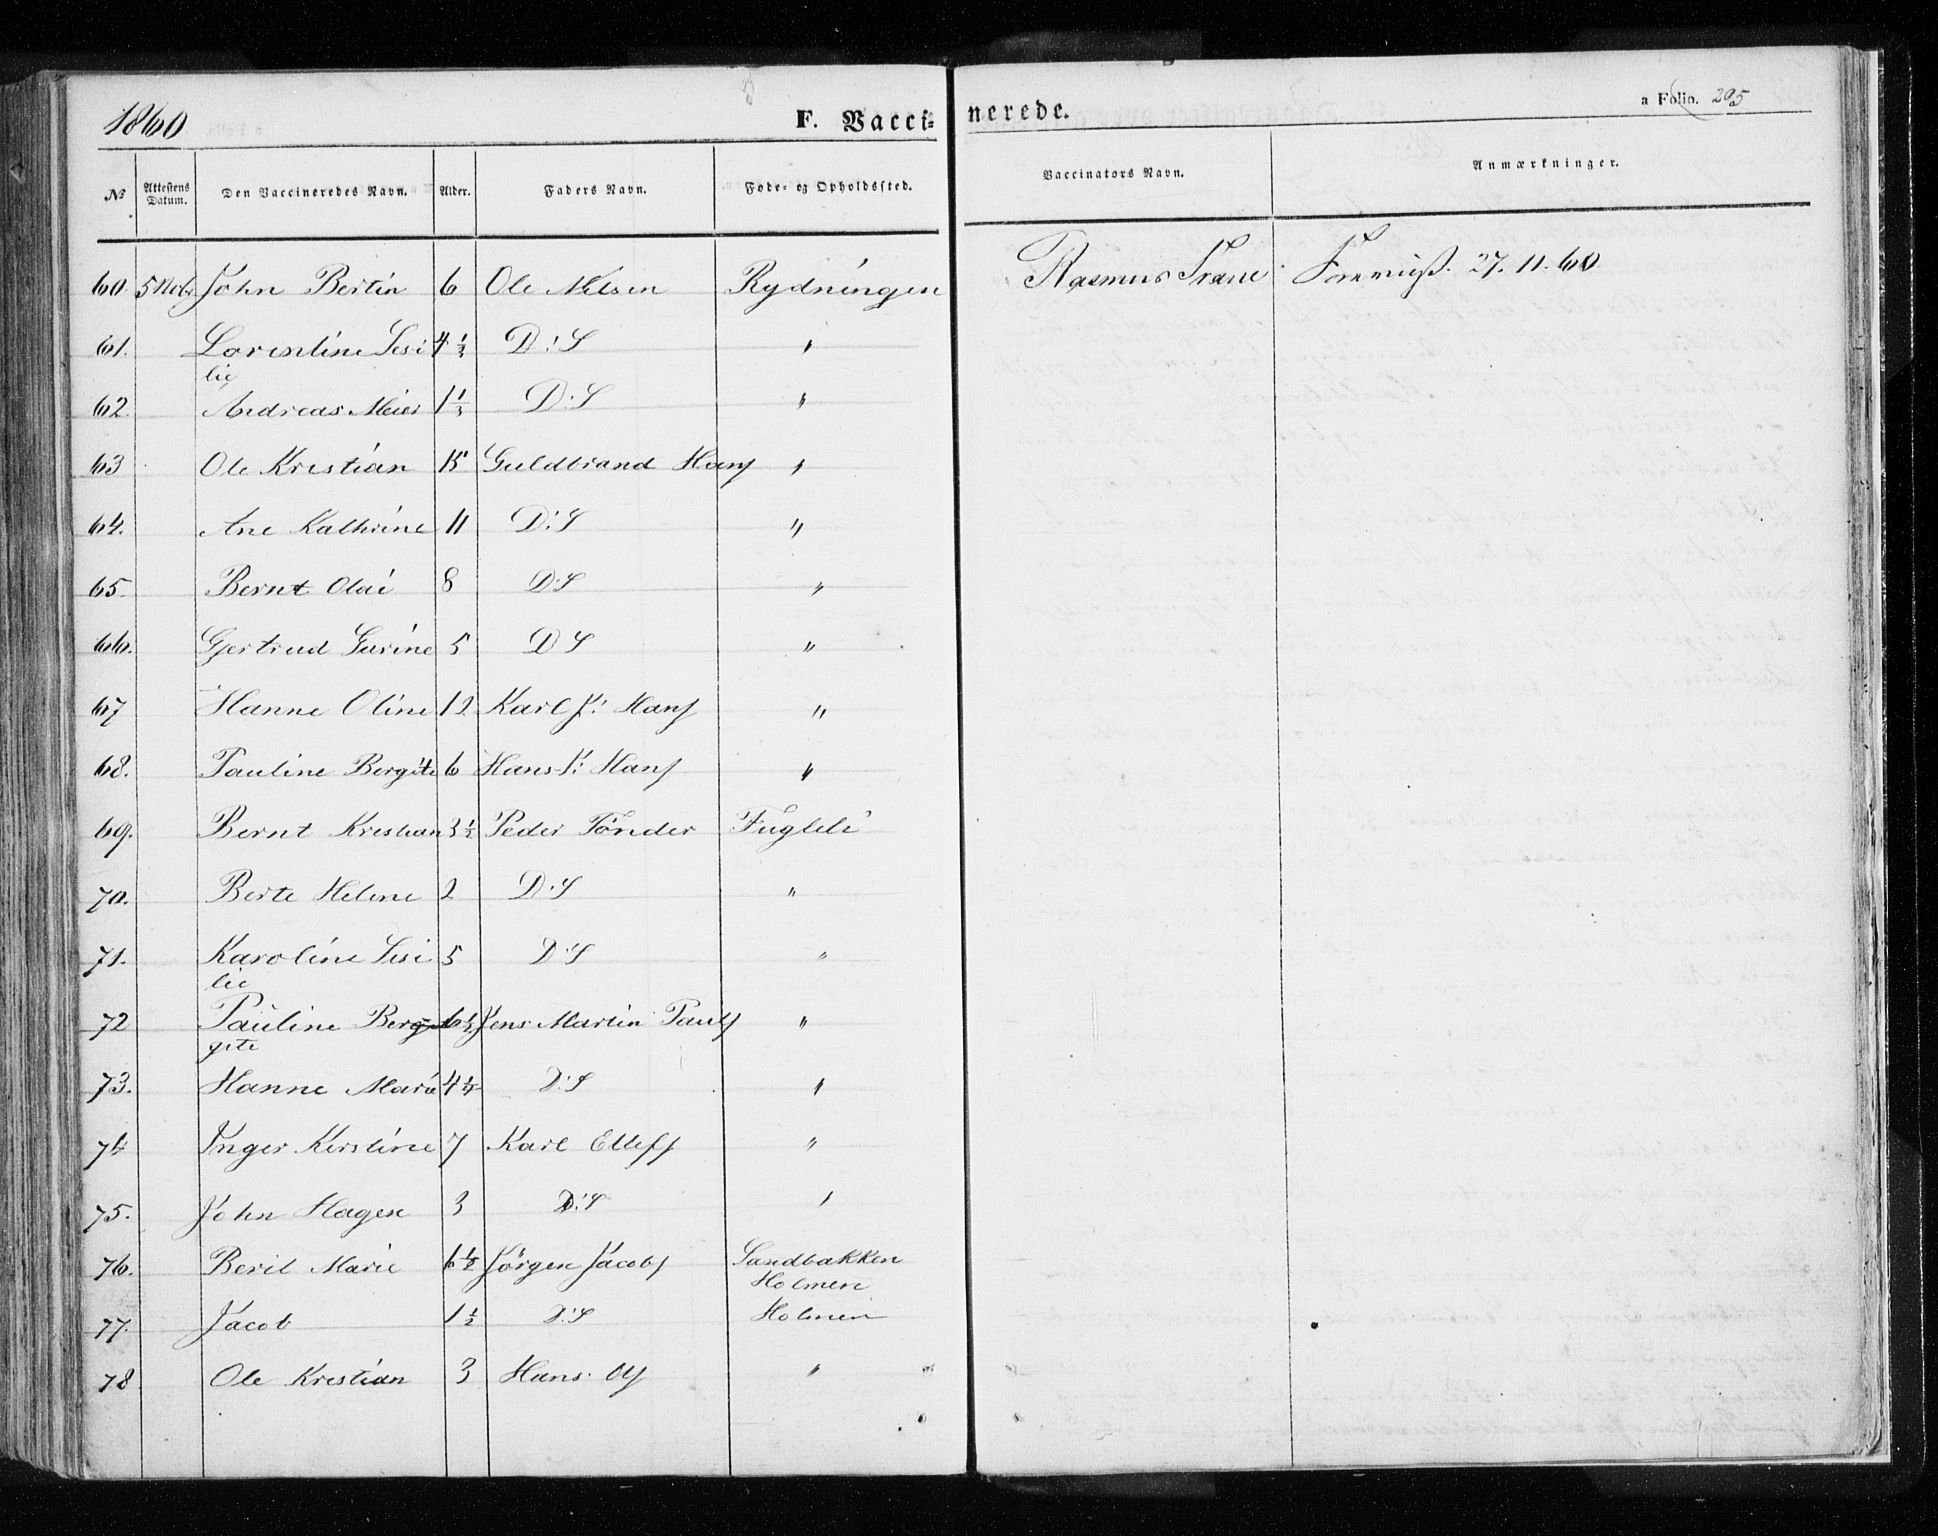 1860 F. Vaccinerede. a Folio. 295
№ Attestens Datum. Den Vaccineredes Navn. Alder. Faders Navn. Føde- og Opholdssted. Vaccinators Navn. Anmærkninger.
60. 5 Nobr John Bertin 6 Ole Nilsen Rydningen Rasmus Trane 27. 11. 60
61. Lorentine Sesi 4 1/3 D: S "
lie
62. Andreas Meier 1 1/3 D: S "
63 Ole Kristian 15 Guldbrand Hans "
64. Ane Kathrine 11 D: S "
65. Bernt Olai 8 D: S "
66. Gjertrud Surine 5 D S "
67 Hanne Oline 12 Karl J: Hans "
68. Pauline Bergite 6 Hans J: Hans "
69. Bernt Kristian 3 1/2 Peder Tönder Fugleli
70. Berte Helene 2 D: S "
71. Karoline Sesi 5 D: S "
lie
72 Pauline Berg 6 1/2 Jens Martin Pauls "
gite
73. Hanne Marie 4 1/4 D: S "
74 Inger Kerstine 7 Karl Ellefs "
75. John Hagen 3 D: S "
76. Beril Marie 6 1/2 Jörgen Jacobs Sandbakken
Holmen
77. Jacob 1 1/2 D: S Holmen
78 Ole Kristian 3 Hans Ols "